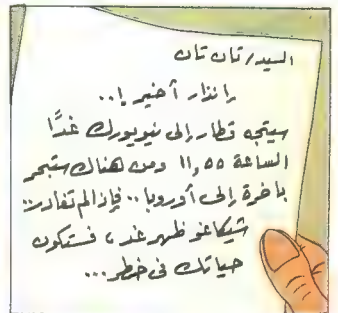 السيد/ تان تان
إنذار أخير !..
سيتجه قطار إلى نيويورك غدًا
الساعة ١١,٥٥ ومن هناك ستبحر
باخرة إلى أوروبا .. فإذا لم تغادر..
شيكاغو ظهر غد ، فستكون
حياتك في خطر...